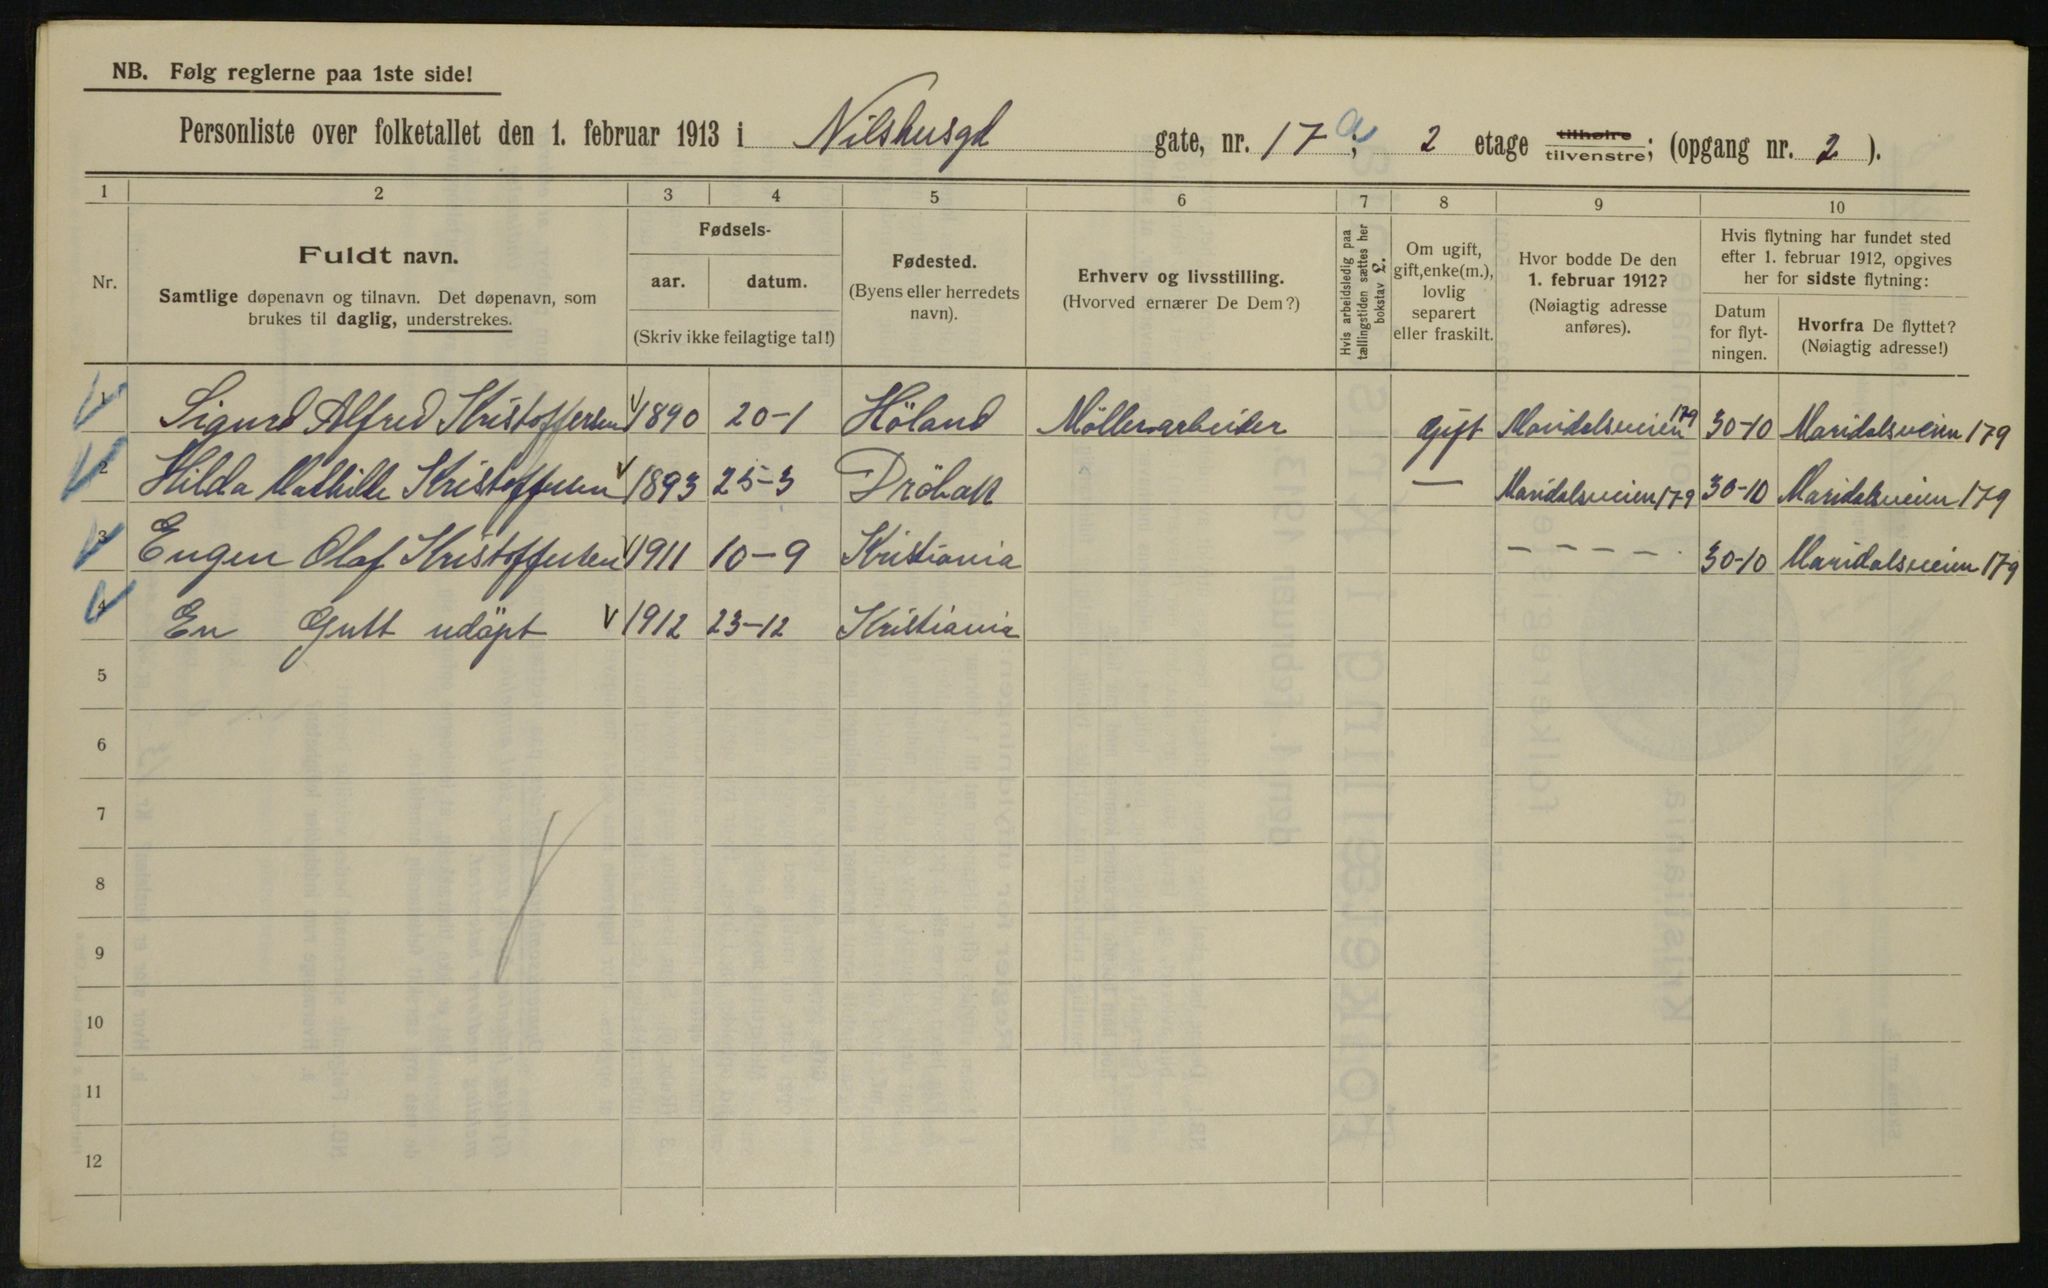 NB. Følg reglerne paa 1ste side!
Personliste over folketallet den 1. februar 1913 i Nilshusgd gate, nr. 17a; 2 etage tilhøire tilvenstre; (opgang nr. 2).
1 2 3 4 5 6 7 8 9 10
Nr.
Fuldt navn.
Samtlige døpenavn og tilnavn. Det døpenavn, som
brukes til daglig, understrekes.
Fødsels-
aar. datum.
(Skriv ikke feilagtige tal!)
Fødested.
(Byens eller herredets
navn).
Erhverv og livsstilling.
(Hvorved ernærer De Dem?)
Hvis arbeidsledig paa
tællingstiden sættes her
bokstav L.
Om ugift,
gift, enke(m.),
lovlig
separert
eller fraskilt.
Hvor bodde De den
1. februar 1912?
(Nøiagtig adresse
anføres).
Hvis flytning har fundet sted
efter 1. februar 1912, opgives
her for sidste flytning:
Datum
for flyt-
ningen.
Hvorfra De flyttet?
(Nøiagtig adresse!)
1 Sigurd Alfred Kristoffersen 1890 20-1 Höland Möllerarbeider Gift Maridalsveien 179 30-10 Maridalsveien 179
2 Hilda Mathilde Kristoffersen 1893 25-3 Dröbak — Maridalsveien 179 30-10 Maridalsveien 179
3 Eugen Olaf Kristoffersen 1911 10-9 Kristiania - - - - - 30-10 Maridalsveien 179
4 En Gutt udöpt 1912 23-12 Kristiania
5
6
7
8
9
10
11
12